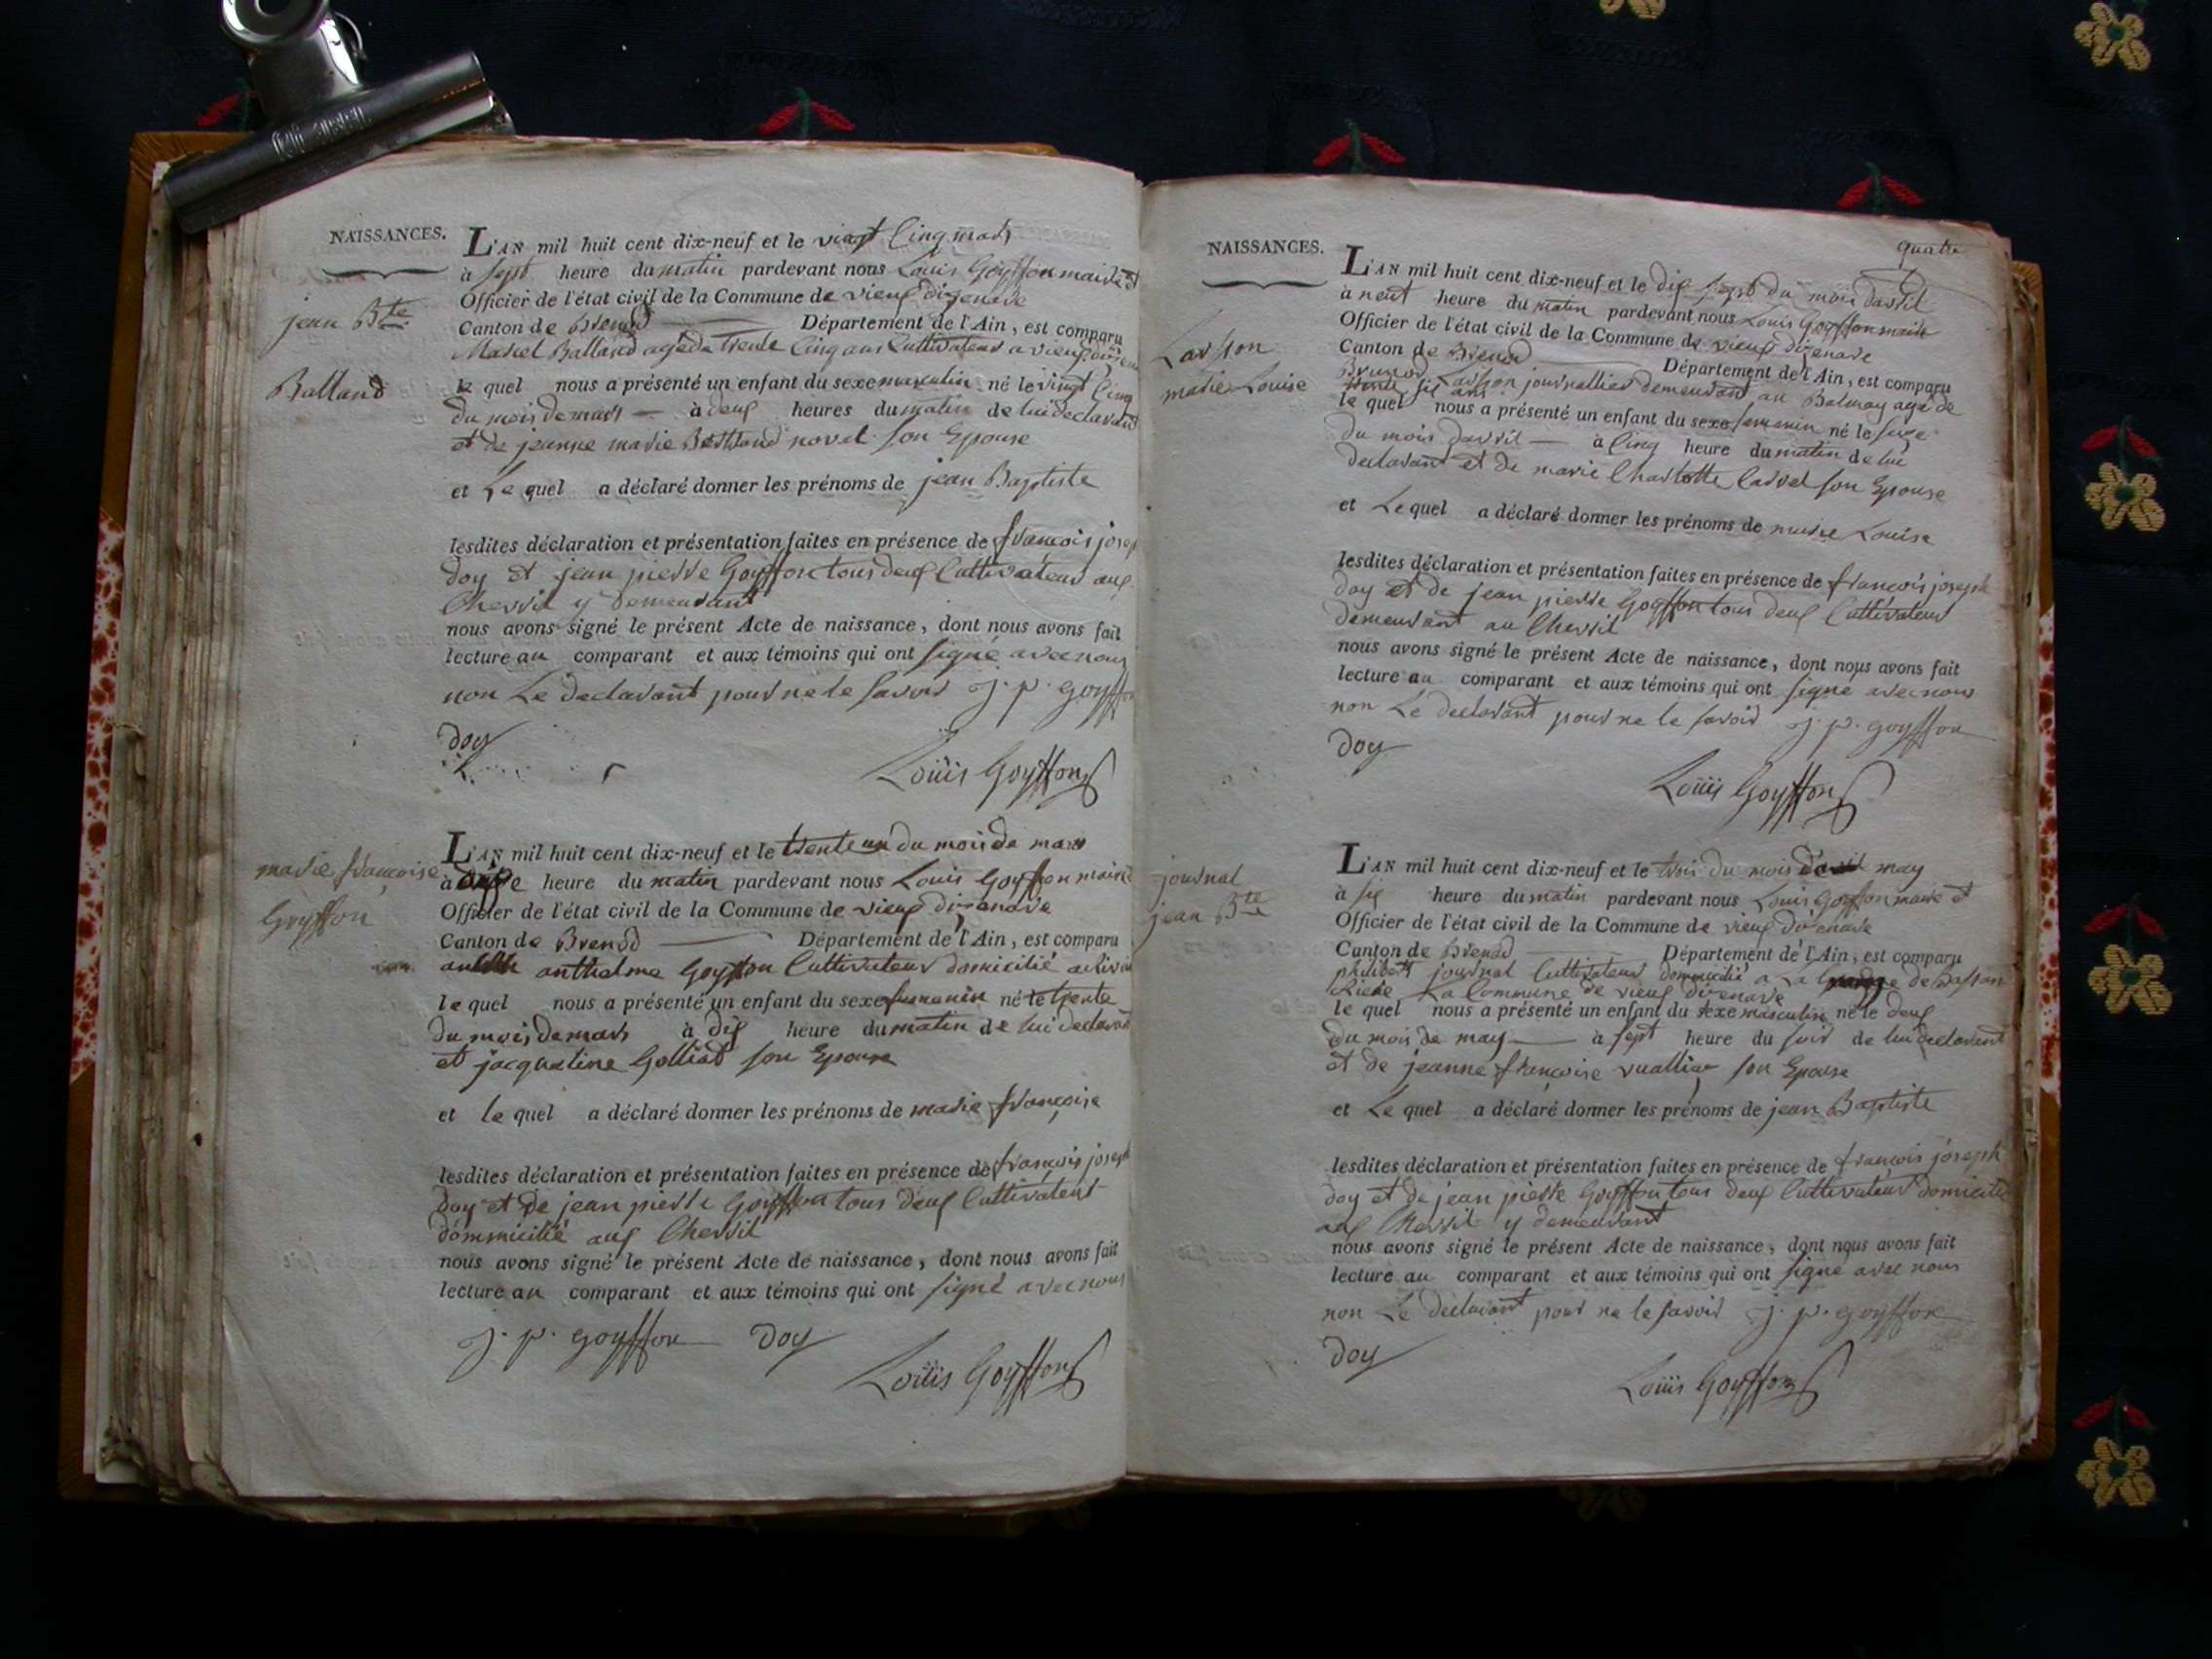 NAISSANCES.
jean Bte
Balland
L'AN mil huit cent dix-neuf et le vingt Cinq mars
à sept heure du matin pardevant nous Louis Goyffon maire et
Officier de l'état civil de la Commune de vieux dizenave
Canton de Brenod Département de l'Ain, est comparu
Marcel Balland agé de trente Cinq ans Cultivateur a vieux
le quel nous a présenté un enfant du sexe masculin né le vingt Cinq
du mois de mars — à deux heures du matin de lui declarant
et de jeanne marie Berthand novel son Epouse
et Le quel a déclaré donner les prénoms de jean Baptiste
lesdites déclaration et présentation faites en présence de françois josep
doy et jean pierre Goyffon tous deux Cultivateur aux
Chevril y demeurant
nous avons signé le présent Acte de naissance, dont nous avons fait
lecture au comparant et aux témoins qui ont signé avec nous
non Le declarant pour ne le savoir J. p. goyffon
doy
Louis Goyffon
marie françoise
Goyffon
L'AN mil huit cent dix-neuf et le trente un du mois de mars
à heure du matin pardevant nous Louis Goyffon maire
Officier de l'état civil de la Commune de vieux dizenave
Canton de Brenod Département de l'Ain, est comparu
anthelme Goyffon Cultivateur domicilié
le quel nous a présenté un enfant du sexe femenin né le trente
du mois de mars à dix heure du matin de lui declarant
et jacqueline Golliat son Epouse
et le quel a déclaré donner les prénoms de marie françoise
lesdites déclaration et présentation faites en présence de françois joseph
doy et de jean pierre Goyffon tous deux Cultivateur
dommicilié aux Chevril
nous avons signé le présent Acte de naissance, dont nous avons fait
lecture au comparant et aux témoins qui ont signé avec nous
J. p. goyffon doy
Louis Goyffon
quatre
NAISSANCES.
Larson
marie Louise
L'AN mil huit cent dix-neuf et le dix sept du mois davril
à neuf heure du matin pardevant nous Louis Goyffon maire
Officier de l'état civil de la Commune de vieux dizenave
Canton de Brenod Département de l'Ain, est comparu
Brunod Larson journallier demeurant au Balmay agé de
trente six ans
le quel nous a présenté un enfant du sexe femenin né le seze
du mois davril — à Cinq heure du matin de lui
declarant et de marie Charlotte Carrel son Epouse
et Le quel a déclaré donner les prénoms de marie Louise
lesdites déclaration et présentation faites en présence de françois joseph
doy et de jean pierre Goyffon tous deux Cultivateur
demeurant au Chevril
nous avons signé le présent Acte de naissance, dont nous avons fait
lecture au comparant et aux témoins qui ont signé avec nous
non Le declarant pour ne le savoir J. p. goyffon
doy
Louis Goyffon
journal
jean Bte
L'AN mil huit cent dix-neuf et le trois du mois may
à six heure du matin pardevant nous Louis Goyffon maire et
Officier de l'état civil de la Commune de vieux dizenave
Canton de Brenod Département de l'Ain, est comparu
philibert journal Cultivateur dommicilié a La
La Commune de vieux dizenave
le quel nous a présenté un enfant du sexe masculin né le deux
du mois de may — à sept heure du soir de lui declarant
et de jeanne françoise vuallia son Epouse
et Le quel a déclaré donner les prénoms de jean Baptiste
lesdites déclaration et présentation faites en présence de françois joseph
doy et de jean pierre Goyffon tous deux Cultivateur domicilié
aux Chevril y demeurant
nous avons signé le présent Acte de naissance, dont nous avons fait
lecture au comparant et aux témoins qui ont signé avec nous
non Le declarant pour ne le savoir J. p. goyffon
doy
Louis Goyffon